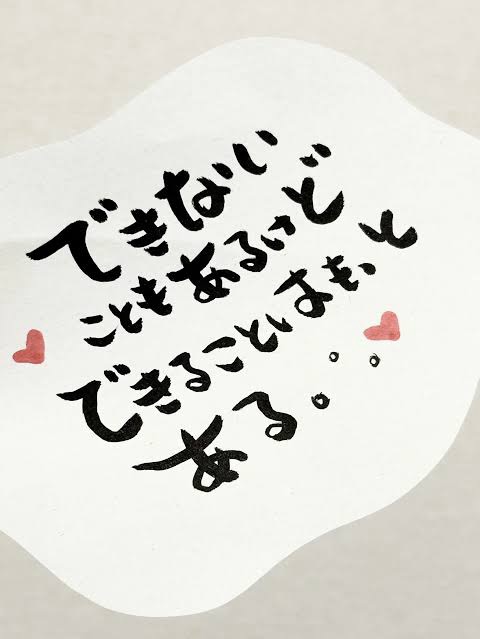 できない
こともあるけど
できることはもっと
ある。。。